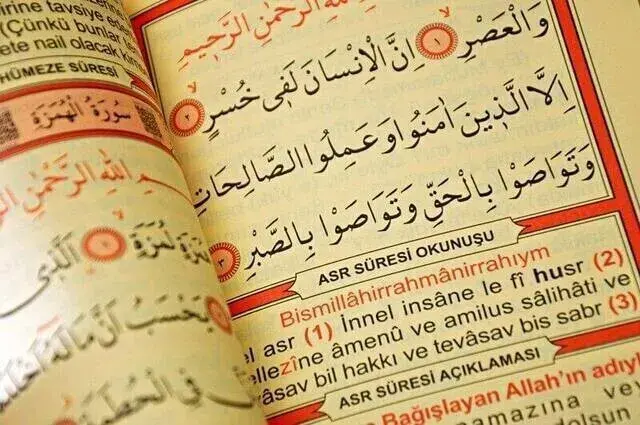 irine tavsiye ed
(Çünkü bunlar
ete nail olacak kim
HÜMEZE SÛRESİ
سُورَةُ الْهُمَزَةِ
مِ اللّٰهِ الرَّحْمٰنِ الرَّ
لُمَزَةٍ ١ اَلَّذ۪ى
يَحْسَبُ اَنَّ مَالَهُٓ اَخْلَ
فِى الْحُطَمَةِ
اللّٰهِ الرَّحْمٰنِ الرَّح۪يمِ
وَالْعَصْرِ ١ اِنَّ الْاِنْسَانَ لَف۪ى خُسْرٍ ٢
اِلَّا الَّذ۪ينَ اٰمَنُوا وَعَمِلُوا الصَّالِحَاتِ
وَتَوَاصَوْا بِالْحَقِّ وَتَوَاصَوْا بِالصَّبْرِ ٣
ASR SÛRESİ OKUNUŞU
Bismillâhirrahmânirrahıym
el asr (1) İnnel insâne le fî husr (2)
ellezîne âmenû ve amilus sâlihâti ve
vâsav bil hakkı ve tevâsav bis sabr (3)
ASR SÛRESİ AÇIKLAMASI
Bağışlayan Allah'ın adıyl
amazına ve
dolsun